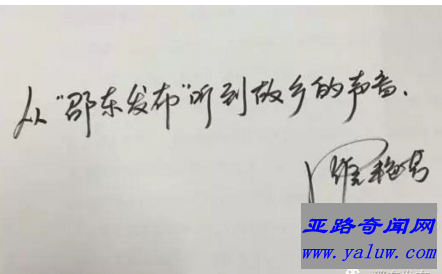 从“邵东发布”听到故乡的声音.
亚路奇闻网
www.yaluw.com